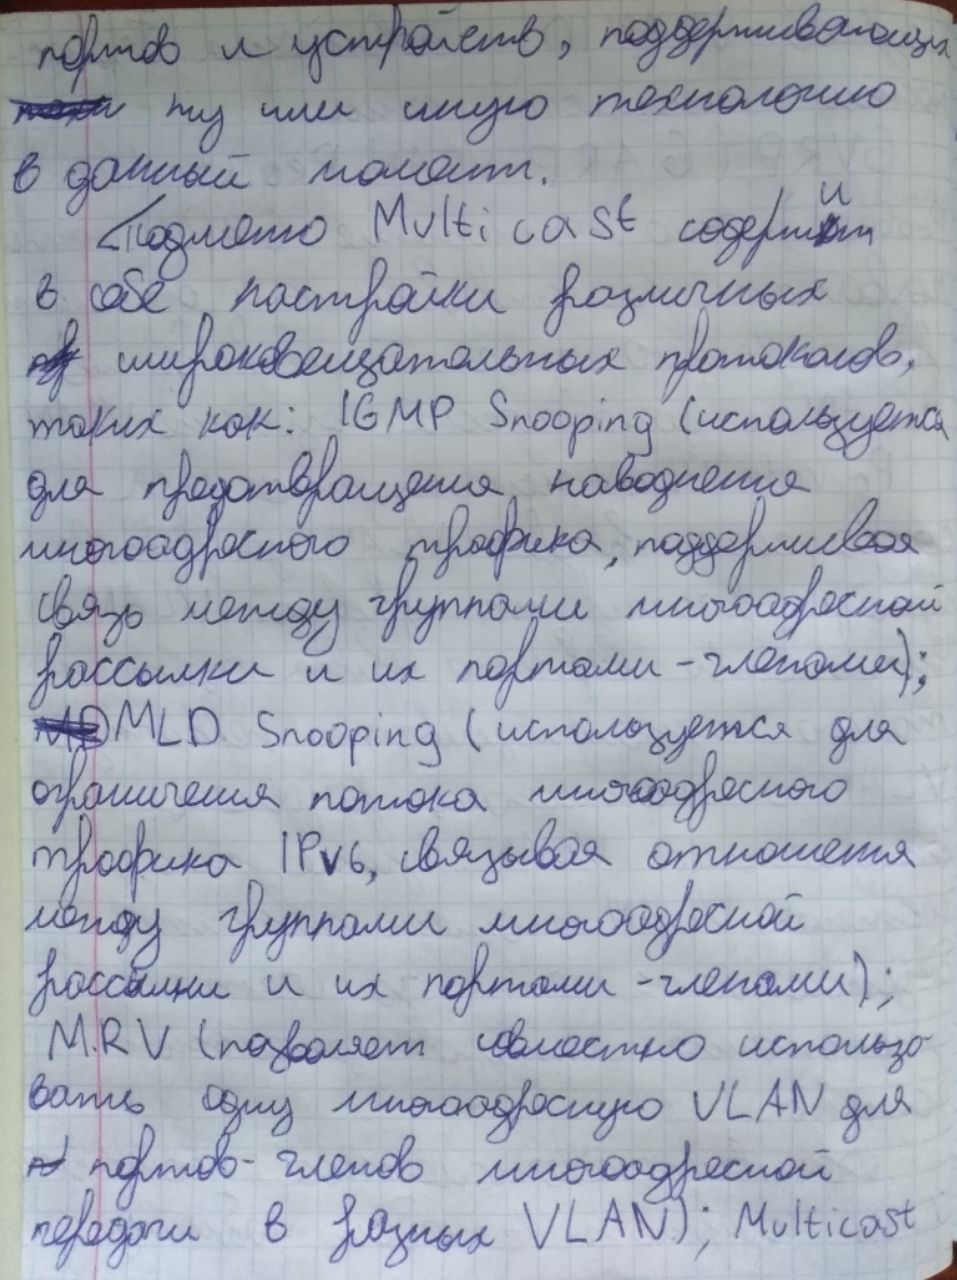 портов и устройств, поддерживающих
ту или иную технологию
в данный момент.
Подменю Multicast содержит
в себе настройки различных
широковещательных протоколов,
таких как: IGMP Snooping (используется
для предотвращения наводнения
многоадресного трафика, поддерживая
связь между группами многоадресной
рассылки и их портами-членами);
MLD Snooping (используется для
ограничения потока многоадресного
трафика IPv6, связывая отношения
между группами многоадресной
рассылки и их портами-членами);
MRV (позволяет совместно использо-
вать одну многоадресную VLAN для
портов-членов многоадресной
передачи в разных VLAN); Multicast